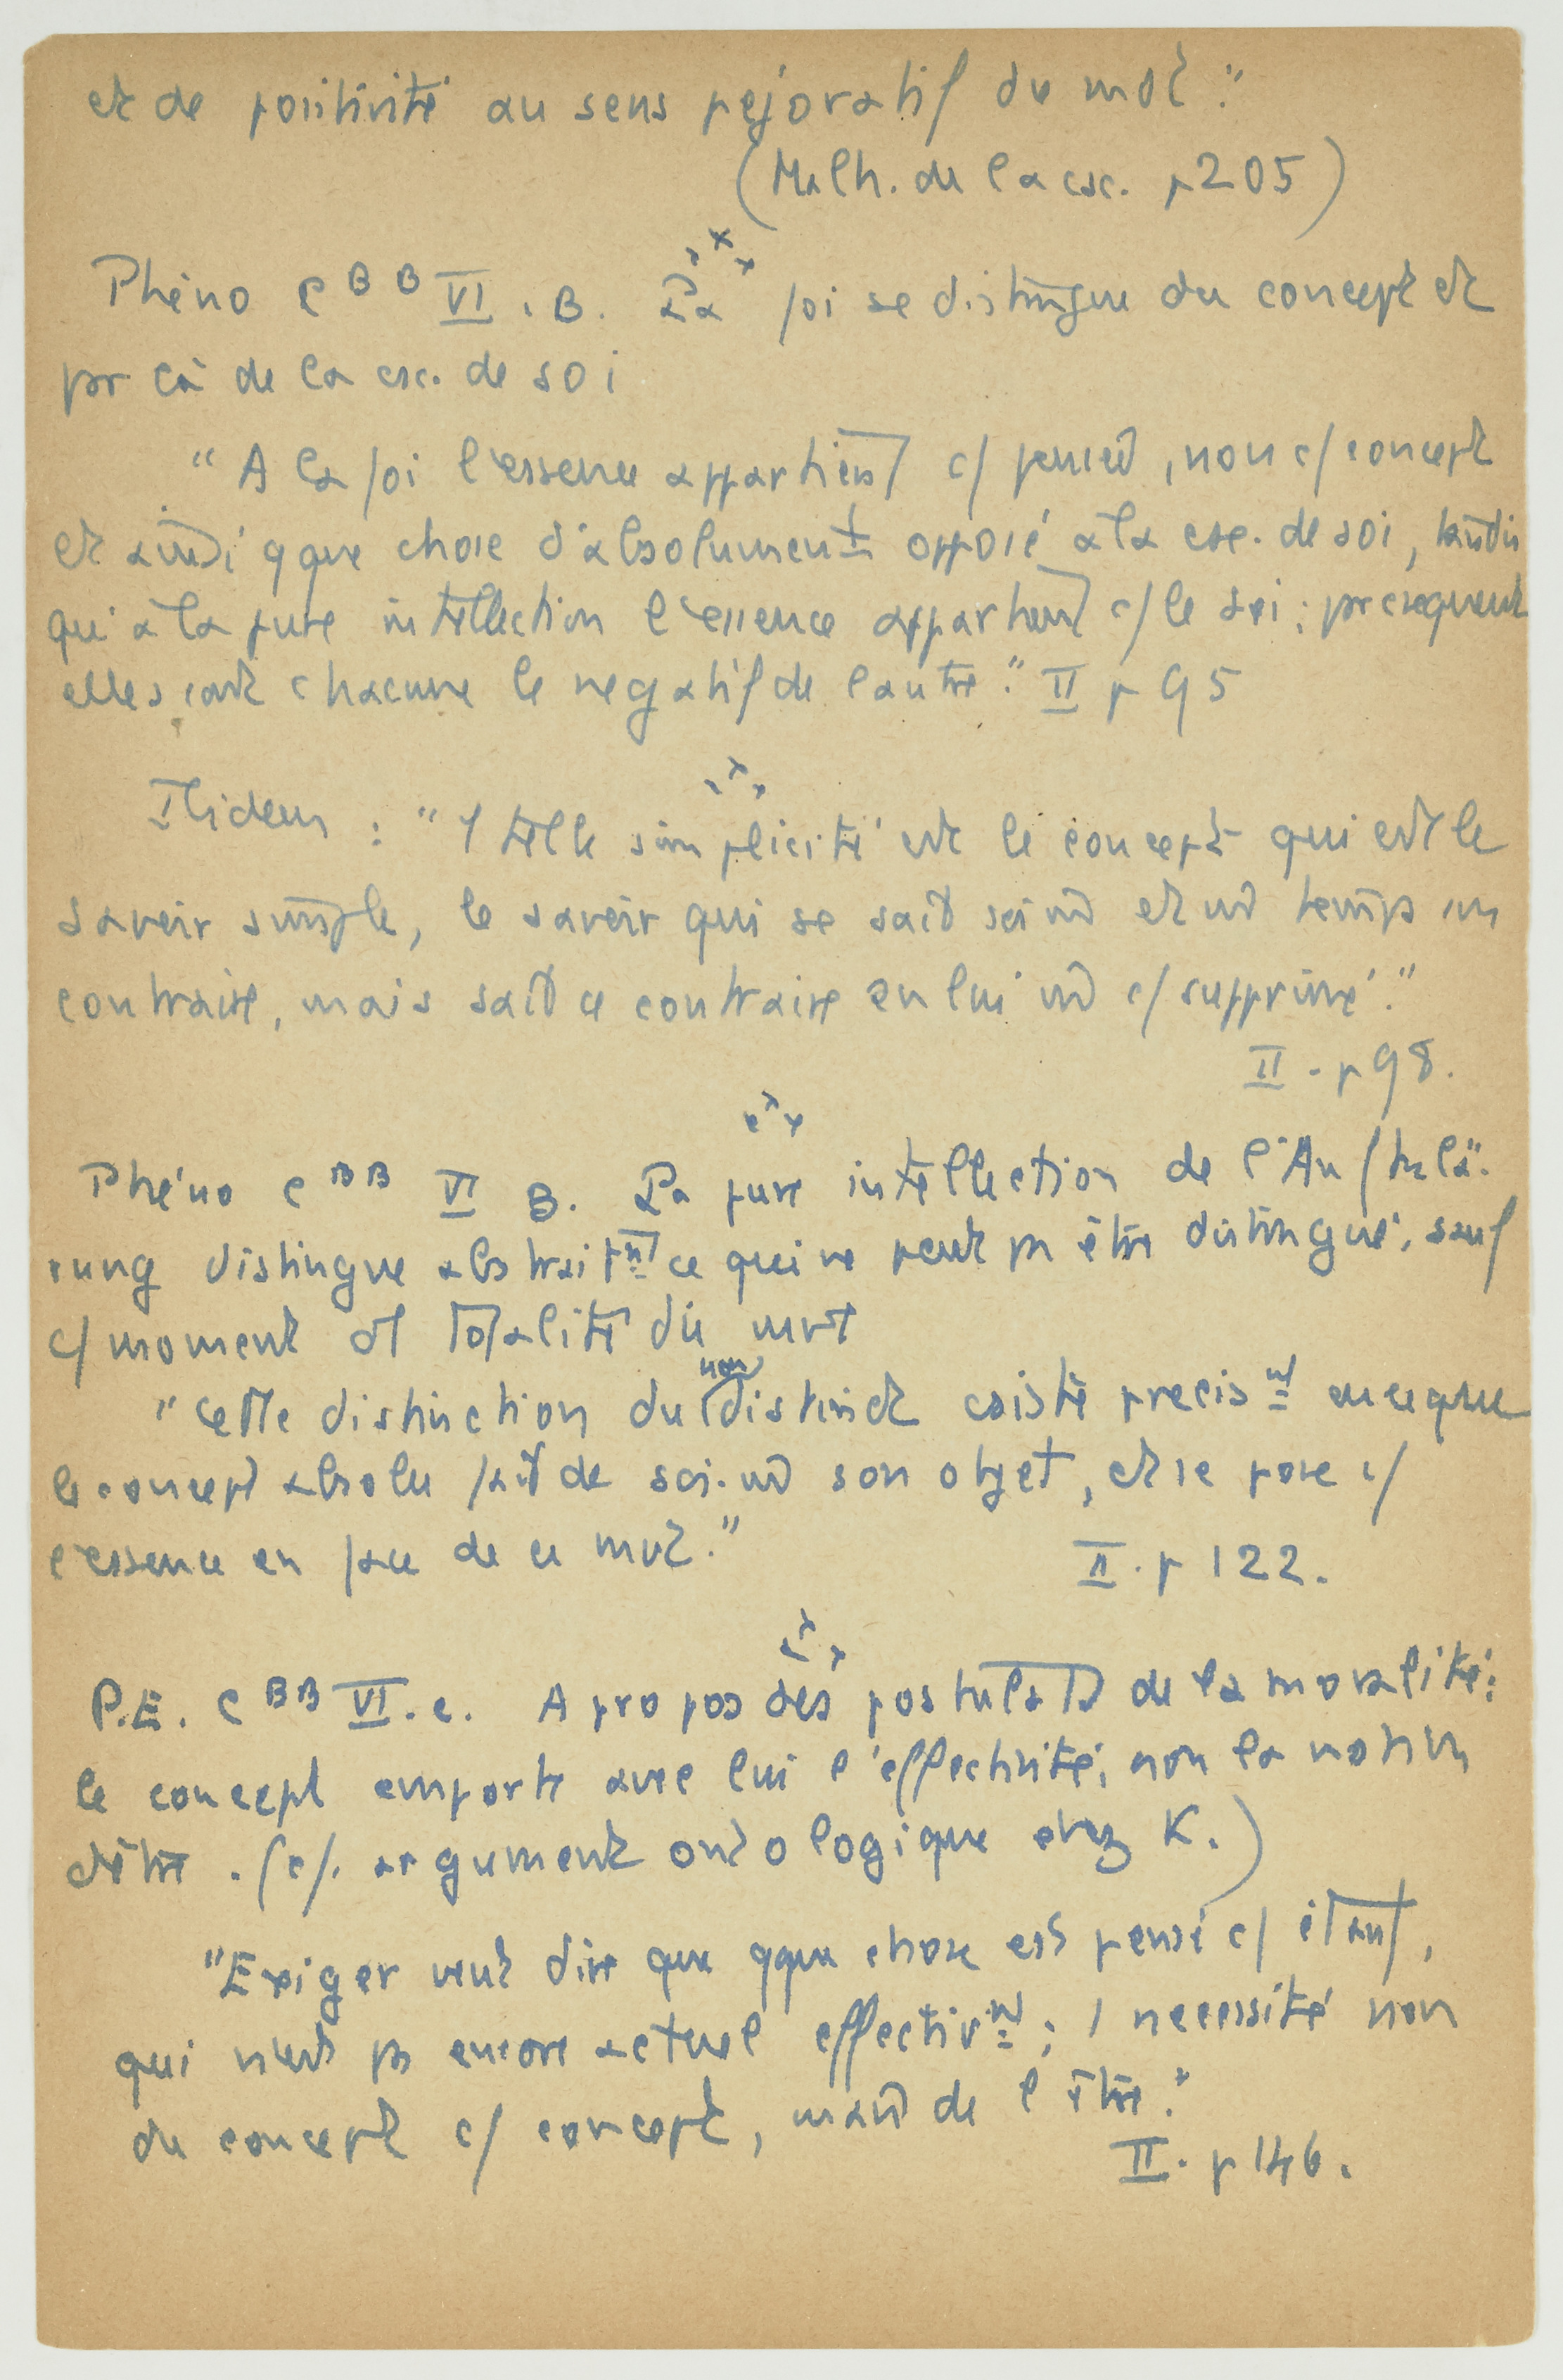 et de positivité au sens péjoratif du mot."
(Malh. de la csc. p 205)
Phéno C BB VI. B. La foi se distingue du concept et
par là de la csc. de soi
"A la foi l'essence appartient c/ pensée, non c/ concept
et ainsi qque chose d'absolument opposé à la csc. de soi, tandis
qu'à la pure intellection l'essence appartient c/ le soi ; par csequent
elles sont chacune le negatif de l'autre." II p 95
Ibidem : "1 telle simplicité est le concept qui est le
savoir simple, le savoir qui se sait soi m̂ et m̂ temps son
contraire, mais sait ce contraire en lui m̂ c/ supprimé."
II. p 98.
Phéno C BB VI B. La pure intellection de l'Aufklä-
rung distingue abstraitmt ce qui ne peut ps être distingué, sauf
c/ moment et totalité du mvt
"Cette distinction du non distinct csiste précismt en ce que
le concept absolu fait de soi-m̂ son objet, et se pose c/
l'essence en face de ce mvt."
II. p 122.
P.E. C BB VI. c. A propos des postulats de la moralité :
le concept emporte avec lui l'effectivité, non la notion
d'être. (cf. argument ontologique chez K.)
"Exiger veut dire que qque chose est pensé c/ étant,
qui n'est ps encore actuel effectivmt ; 1 necessité non
du concept c/ concept, mais de l'être."
II. p 146.